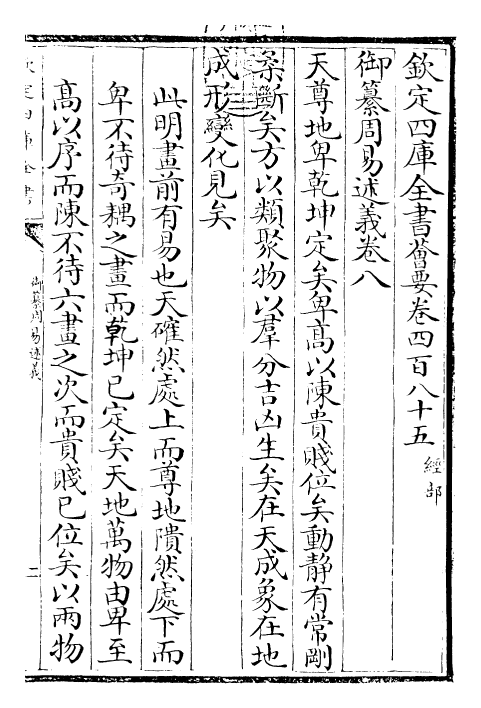 欽定四庫全書薈要卷四百八十五 經部
御纂周易述義卷八
天尊地卑乾坤定矣卑高以陳貴賤位矣動靜有常剛
柔斷矣方以類聚物以羣分吉凶生矣在天成象在地
成形變化見矣
此明畫前有易也天確然處上而尊地隤然處下而
卑不待奇耦之畫而乾坤已定矣天地萬物由卑至
高以序而陳不待六畫之次而貴賤已位矣以兩物
欽定四庫全書
御纂周易述義